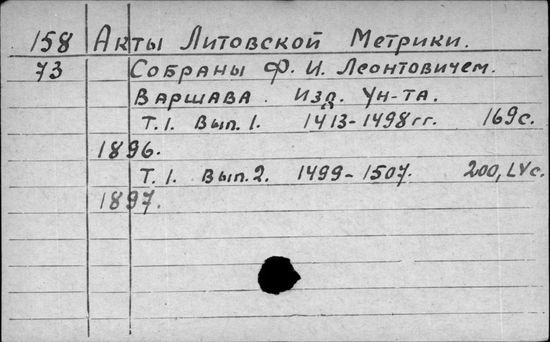 158 Акты Литовской Метрики.
73 Собраны Ф. И. Леонтовичем.
Варшава. Изд. Ун-та.
Т. 1. Вып. 1. 1413-1498гг. 169с.
1896.
Т. 1. Вып. 2. 1499-1507. 200, LVс.
1897.